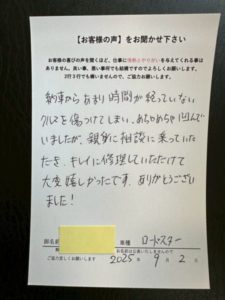 【お客様の声】をお聞かせ下さい
お客様の喜びの声を聞くほど、仕事に情熱とやりがいを与えてくれる事は
ありません。良い事、悪い事何でも結構ですのでよろしくお願いします。
2行3行でも構いませんので、ご協力お願いします。
納車からあまり時間が経っていない
クルマを傷つけてしまい、めちゃめちゃ凹んで
いましたが、親身に相談に乗っていた
だき、キレイに修理していただけて
大変嬉しかったです。ありがとうござい
ました!
御名前
車種 ロードスター
お名前は公表いたしません
ご協力宜しくお願いします
2025年9月2日